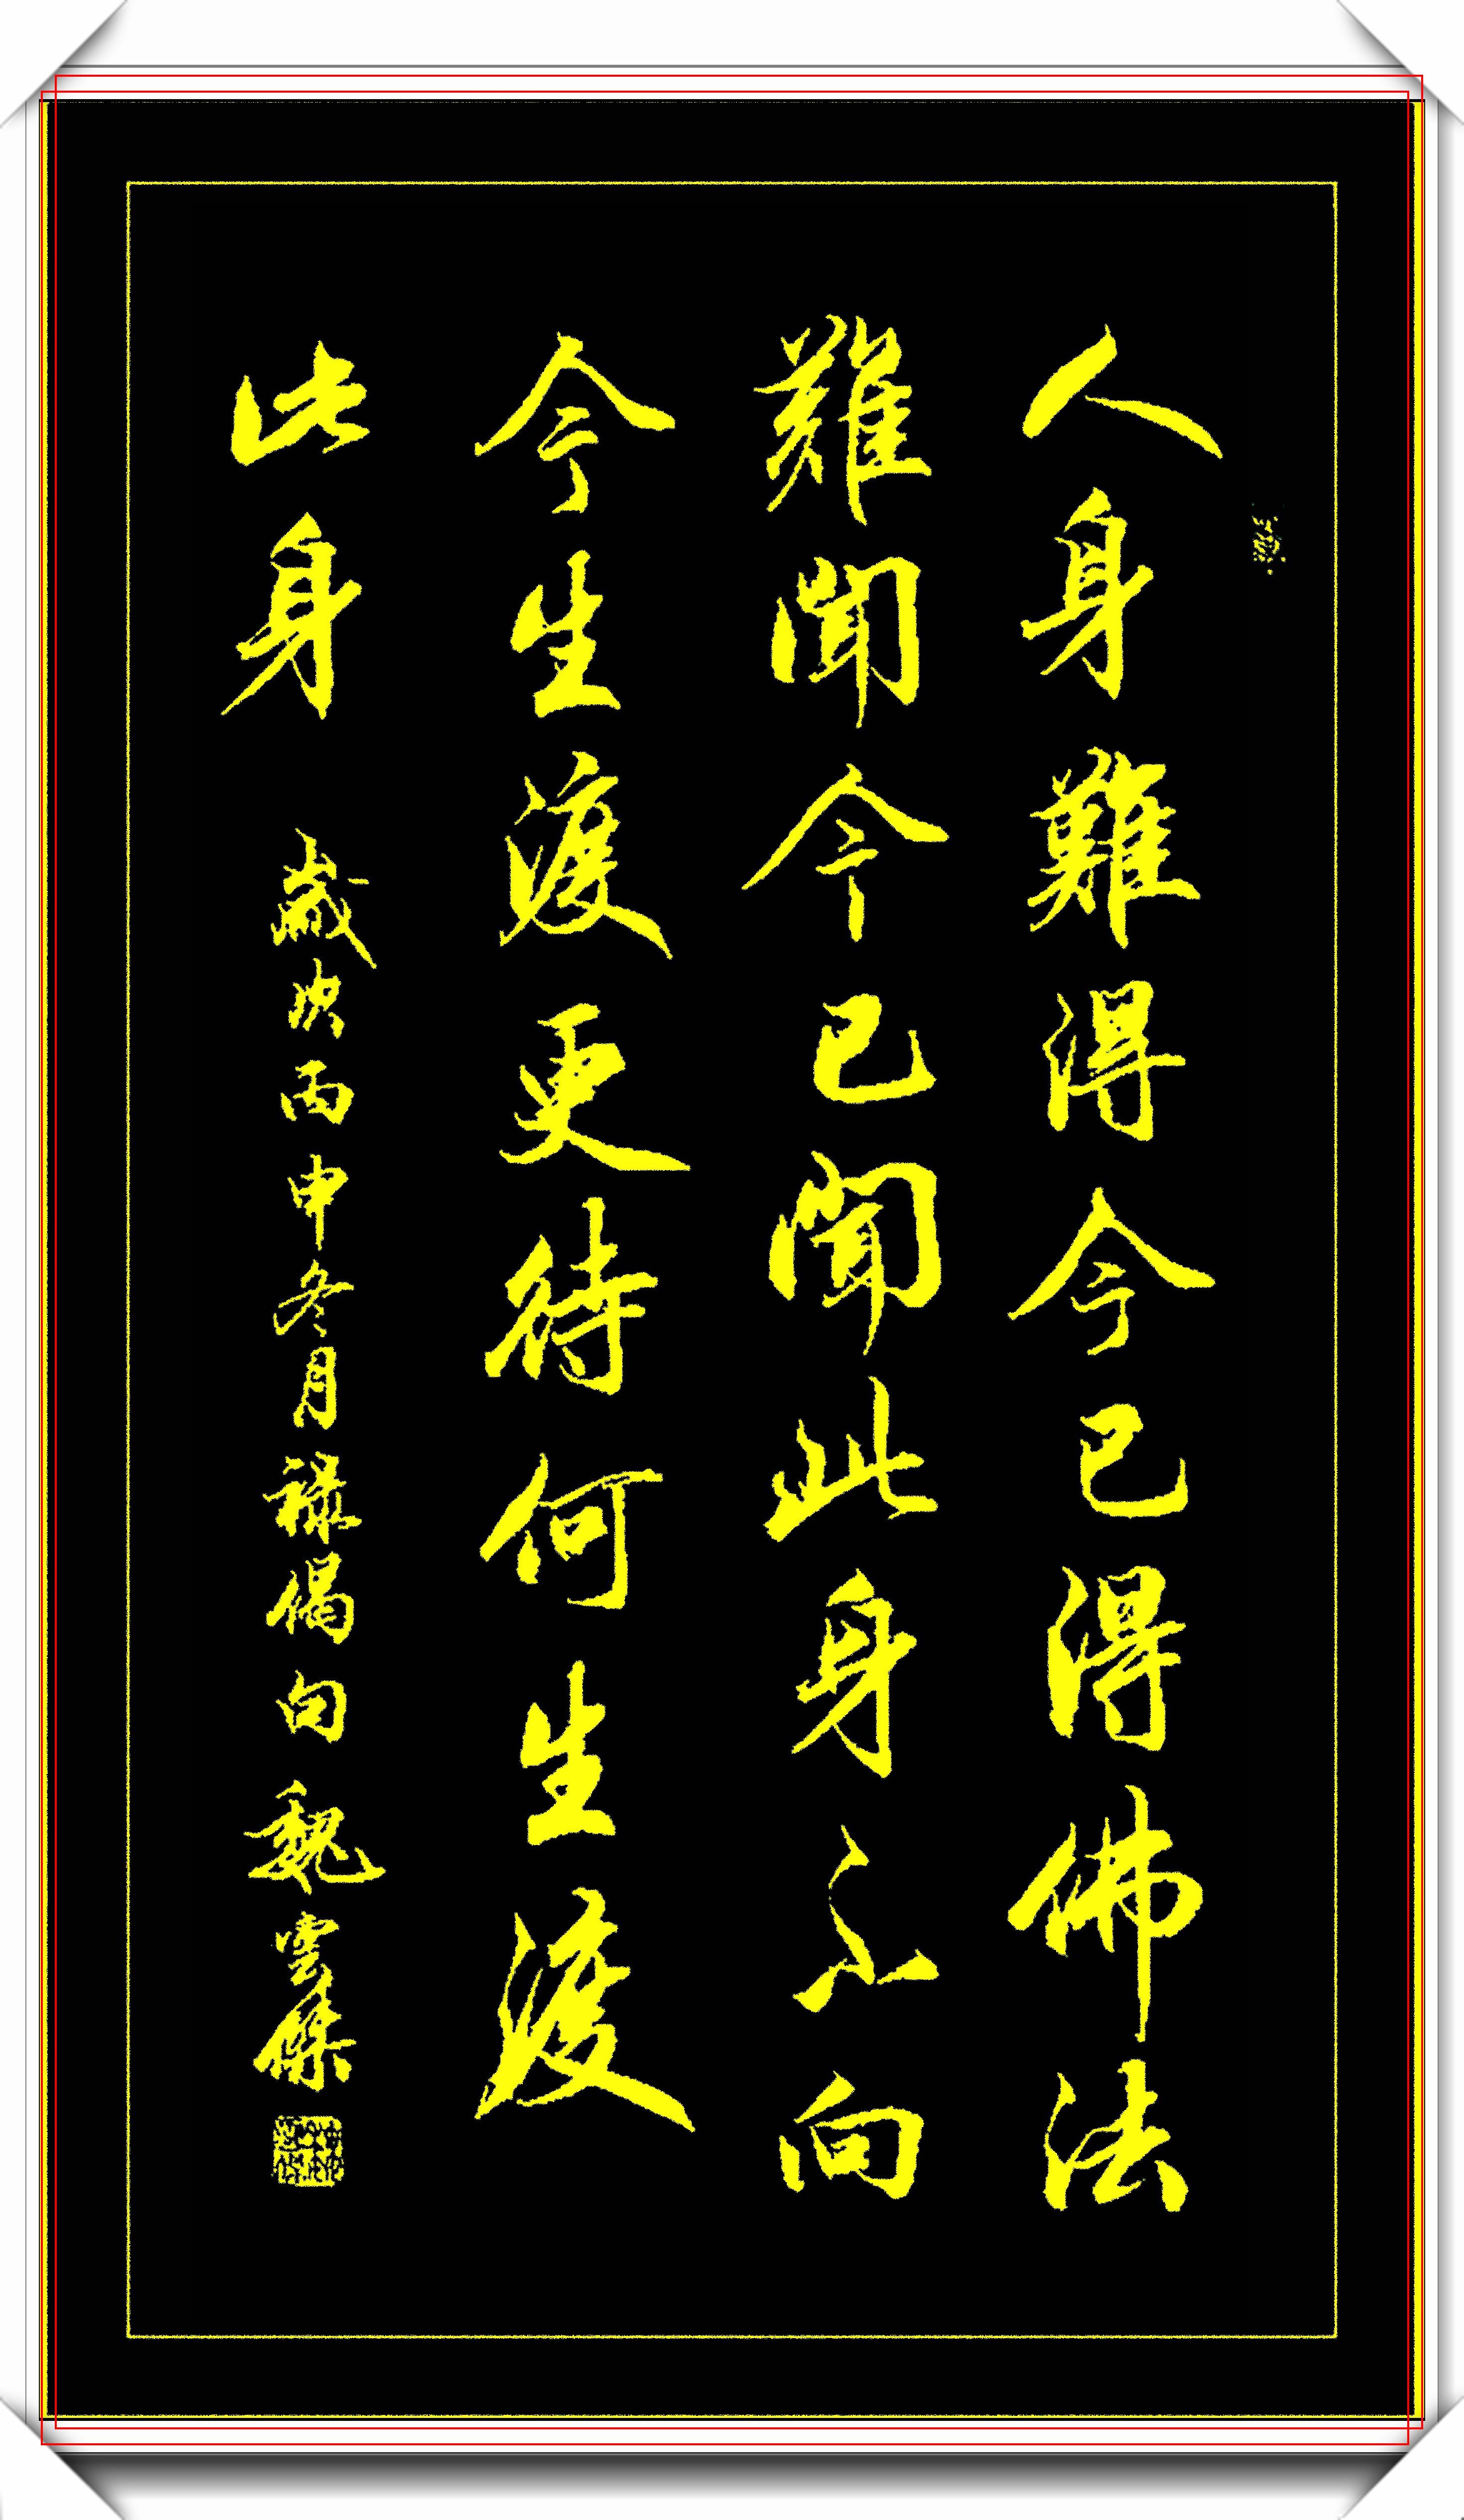 人身難得今已得佛法
難聞今已聞此身不向
今生渡更待何生渡
此身 歲次丙申冬月禄偈句魏雲傑